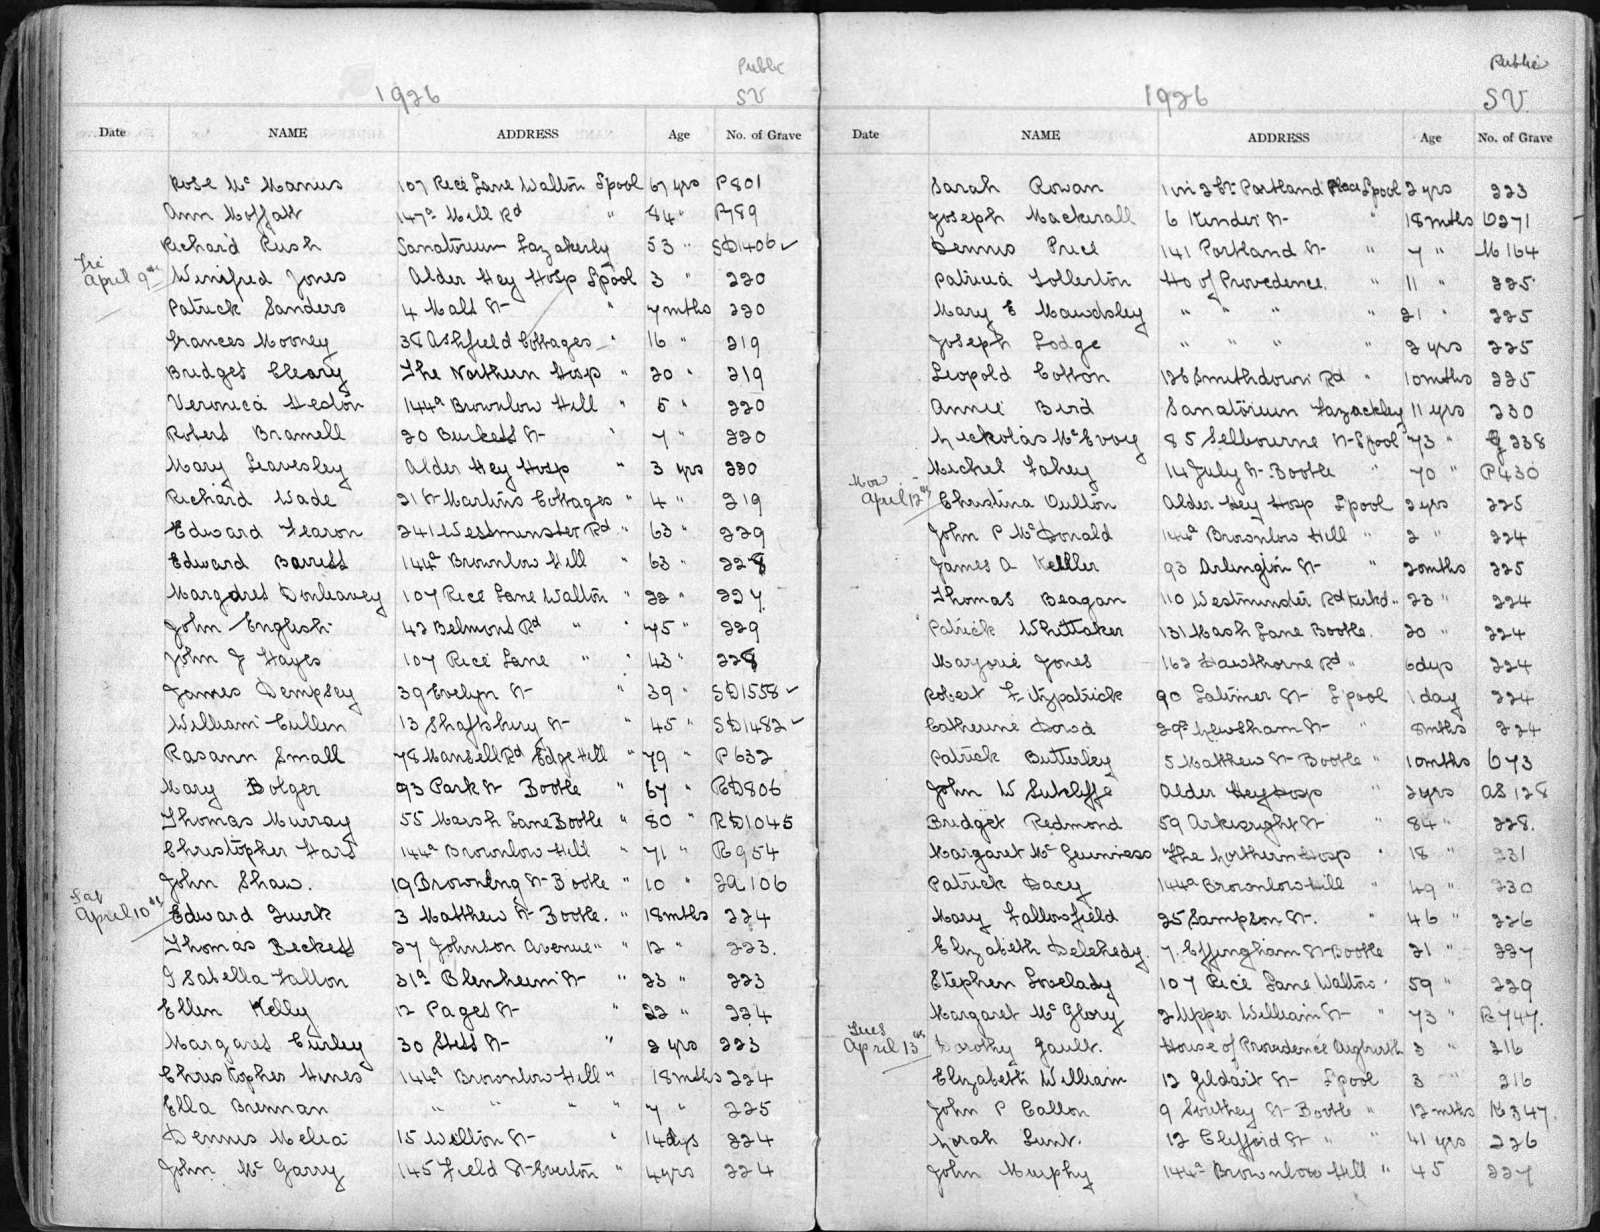 Public
1926 SV
Date NAME ADDRESS Age No. of Grave
Rose Mc Manus 107 Rice Lane Walton Lpool 67 yrs P801
Ann Moffatt 147a Mill Rd " 84 " P789
Richard Rush Sanatorium Fazakerly 53 " SD1406 ✓
Fri April 9th Winifred Jones Alder Hey Hosp Lpool 3 " 220
Patrick Sanders 4 Malt St " 7 mths 220
Frances Mooney 38 Ashfield Cottages " 16 " 219
Bridget Cleary The Northern Hosp " 20 " 219
Veronica Heston 144a Brownlow Hill " 5 " 220
Robert Bramell 20 Burkett St " 7 " 220
Mary Leavesley Alder Hey Hosp " 3 yrs 220
Richard Wade 21 St Martins Cottages " 4 " 219
Edward Fearon 241 Westminster Rd " 63 " 229
Edward Barrett 144a Brownlow Hill " 63 " 228
Margaret Donleavey 107 Rice Lane Walton " 22 " 227
John English 42 Belmont Rd " " 75 " 229
John J Hayes 107 Rice Lane " " 43 " 228
James Dempsey 39 Evelyn St " 39 " SD1558 ✓
William Cullen 13 Shaftsbury St " 45 " SD1482 ✓
Rosann Small 78 Mansell Rd Edge Hill " 79 " P632
Mary Bolger 93 Park St Bootle " 67 " RD806
Thomas Murray 55 Marsh Lane Bootle " 80 " RD1045
Christopher Hart 144a Brownlow Hill " 71 " R954
John Shaw. 19 Browning St Bootle " 10 " 2A106
Sat April 10th Edward Quirk 3 Matthew St Bootle. " 18 mths 224
Thomas Beckett 27 Johnson Avenue " " 12 " 223.
Isabella Fallon 31a Blenheim St " 23 " 223
Ellen Kelly 12 Pages St " 22 " 224
Margaret Curley 30 St " 2 yrs 223
Christopher Hines 144a Brownlow Hill " 18 mths 224
Ella Brennan " " " " 7 " 225
Dennis Melia 15 Welton St " 14 dys 224
John Mc Garry 145 Field St Everton " 4 yrs 224
Public
1926 SV.
Date NAME ADDRESS Age No. of Grave
Sarah Rowan 1 in 2 Ct Portland Place Lpool 2 yrs 223
Joseph Mackerall 6 Kinder St " 18 mths O271
Dennis Price 141 Portland St " 7 " M164
Patricia Tollerton Ho of Provedence. " 11 " 225
Mary E Mawdsley " " " " 21 " 225
Joseph Lodge " " " " 2 yrs 225
Leopold Cotton 126 Smithdown Rd " 10 mths 225
Annie Bird Sanatorium Fazackley 11 yrs 230
Nickolas Mc Evoy 85 Selbourne St Lpool 73 " G338
Michel Fahey 14 July St Bootle " 70 " P430
Mon April 12th Christina Oulton Alder Hey Hosp Lpool 2 yrs 225
John P Mc Donald 144a Brownlow Hill " 2 " 224
James A Keller 93 Arlington St " 20 mths 225
Thomas Beagan 110 Westminster Rd Kirkd " 23 " 224
Patrick Whittaker 131 Mash Lane Bootle. 20 " 224
Marjorie Jones 162 Hawthorne Rd " 6 dys 224
Robert Fitzpatrick 90 Latimer St Lpool 1 day 224
Catherine Dowd 29a Newsham St " 8 mths 224
Patrick Butterley 5 Matthew St Bootle " 10 mths O73
John W Sutcliffe Alder Hey Hosp " 2 yrs AS128
Bridget Redmond 59 Arkwright St " 84 " 228.
Margaret Mc Guinness The Northern Hosp " 18 " 231
Patrick Dacy 144a Brownlow Hill " 49 " 230
Mary Fallonsfield 25 Sampson St. " 46 " 226
Elizabeth Delehedy. 7. Effingham St Bootle 21 " 227
Stephen Lovelady 107 Rice Lane Walton " 59 " 229
Margaret Mc Glory 2 Upper William St " 73 " R747.
Tues April 13th Dorothy Gault. House of Providence Aigburth 3 " 216
Elizabeth William 12 Gildart St Lpool 3 " 216
John P Callon 9 Southey St Bootle " 12 mths K347.
Norah Lunt. 12 Clifford St " " 41 yrs 226
John Murphy 144a Brownlow Hill " 45 227